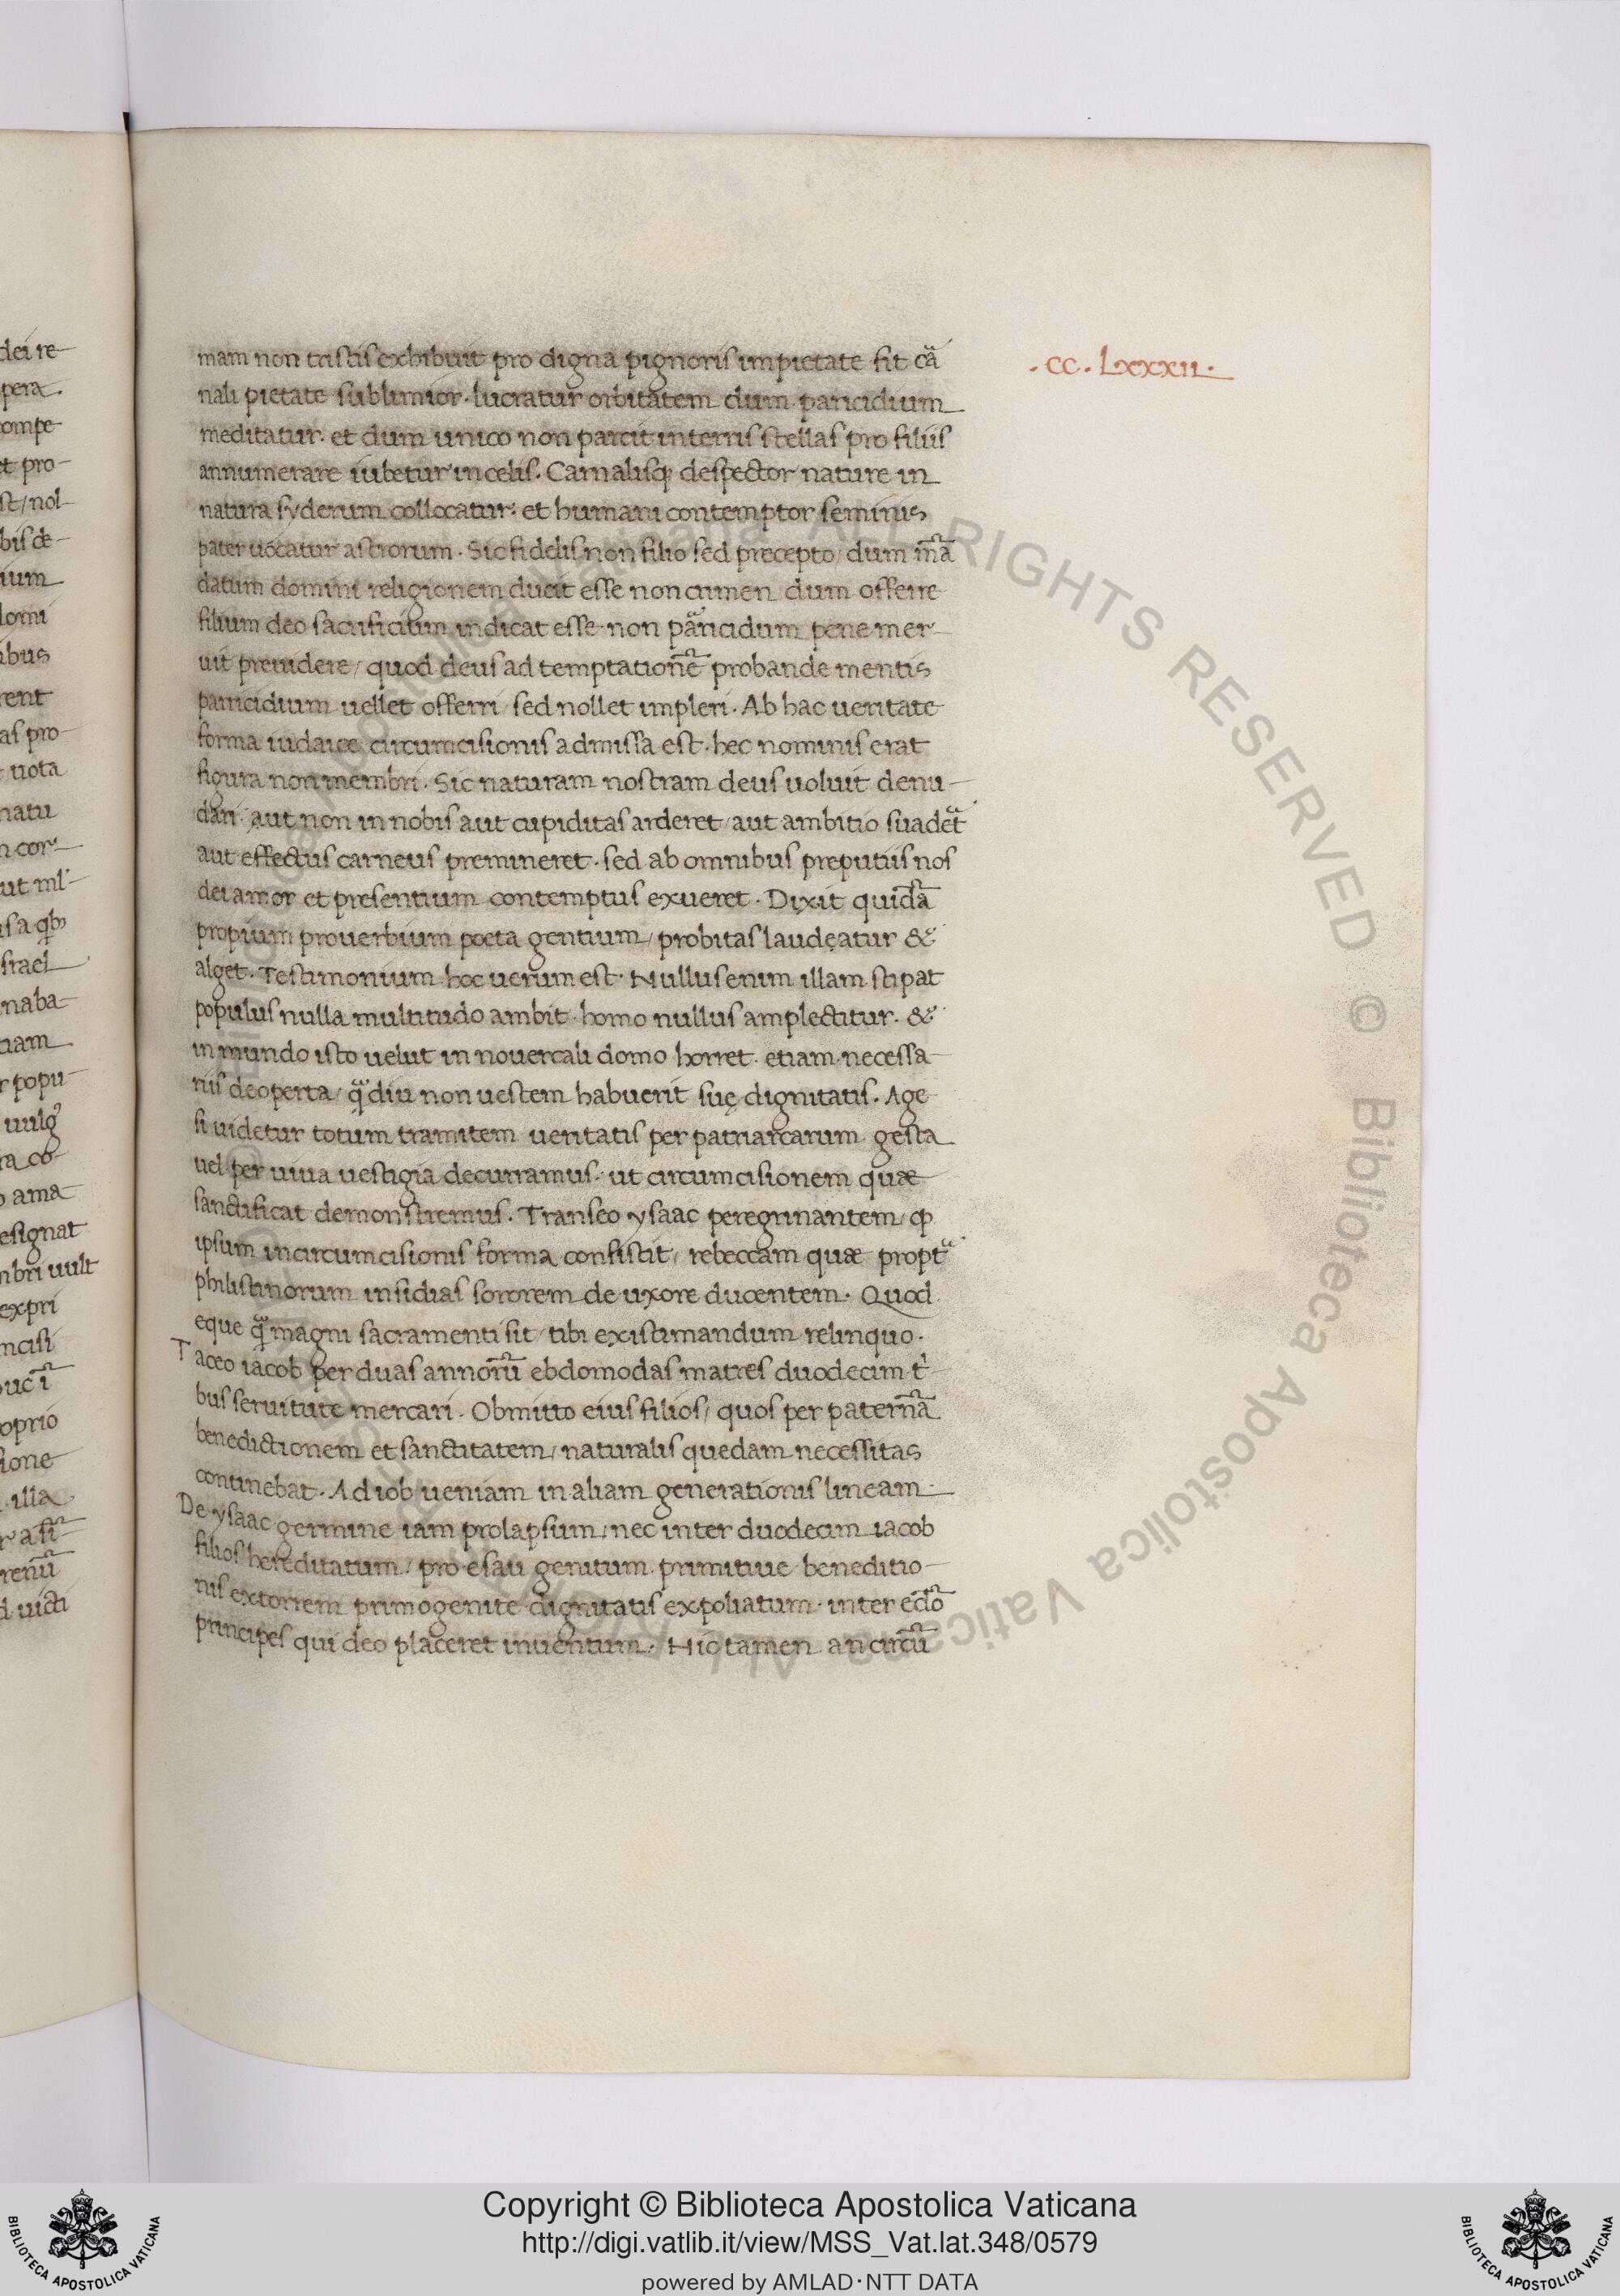 dei re-
pera.
ompe
et pro-
st/nol-
bis de-
ium
domi
ibus
rent
as pro-
uota
natu
n cor-
ut ml'
sa qb;
srael
naba-
ciam
r popu-
uulg9
ra co-
o ama-
esignat
nbri uult
expri
ncisi
oprio
ione
illa.
d uicti
.CC.LXXXII.
mam non tristis exhibuit pro digna pignoris impietate fit caᷓ
nali pietate sublimior. lucratur orbitatem dum paricidium
meditatur. et dum unico non parcit in terris stellas pro filiis
annumerare iubetur in celis. Carnalisq; despector nature in
natura syderum collocatur: et humani contemptor seminis
pater uocatur astrorum. Sic fidelis non filio sed precepto/ dum maᷓ
datum domini religionem ducit esse non crimen dum offerre
filium deo sacrificium indicat esse non paᷓricidum pene mer-
uit preuidere/ quod deus ad temptationeᷓ probande mentis
parricidium uellet offerri/ sed nollet impleri. Ab hac ueritate
forma iudaice circumcisionis admissa est. hec nominis erat
figura non membri. Sic naturam nostram deus uoluit denu-
dari. aut non in nobis aut cupiditas arderet/ aut ambitio suadetᷓ
aut effectus carneus premineret. sed ab omnibus preputiis nos
dei amor et presentium contemptus exueret. Dixit quidaᷓ
propium prouerbium poeta gentium/ probitas laudeatur &
alget. Testimonium hoc uerum est. Nullus enim illam stipat
populus nulla multitudo ambit. homo nullus amplectitur. &
in mundo isto uelut in nouercali domo horret. etiam necessa-
riis deoperta/ qᷓdiu non uestem habuerit suę dignitatis. Age
si uidetur totum tramitem ueritatis per patriarcarum gesta
uel per uiua uestigia decurramus. ut circumcisionem quæ
sanctificat demonstremus. Transeo ysaac peregrinantem/ qp
ipsum in circumcisionis forma consistit/ rebeccam quæ proptᷓ
philistinorum insidias sororem de uxore ducentem. Quod
eque qᷓ magni sacramenti sit/ tibi existimandum relinquo.
Taceo iacob per duas annoruᷓ ebdomodas matres duodecim t'
bus seruitute mercari. Obmitto eius filios/ quos per paternaᷓ
benedictionem et sanctitatem/ naturalis quedam necessitas
continebat. Ad iob ueniam in aliam generationis lineam.
De ysaac germine iam prolapsum/ nec inter duodecim iacob
filios hereditatum/ pro esau genitum primitiue beneditio-
nis extorrem primogenite dignitatis expoliatum. inter edoᷓ
principes qui deo placeret inuentum. Hic tamen an circuᷓ
© Biblioteca Apostolica Vaticana ALL RIGHTS RESERVED
Copyright © Biblioteca Apostolica Vaticana
http://digi.vatlib.it/view/MSS_Vat.lat.348/0579
powered by AMLAD·NTT DATA
BIBLIOTECA APOSTOLICA VATICANA
BIBLIOTECA APOSTOLICA VATICANA